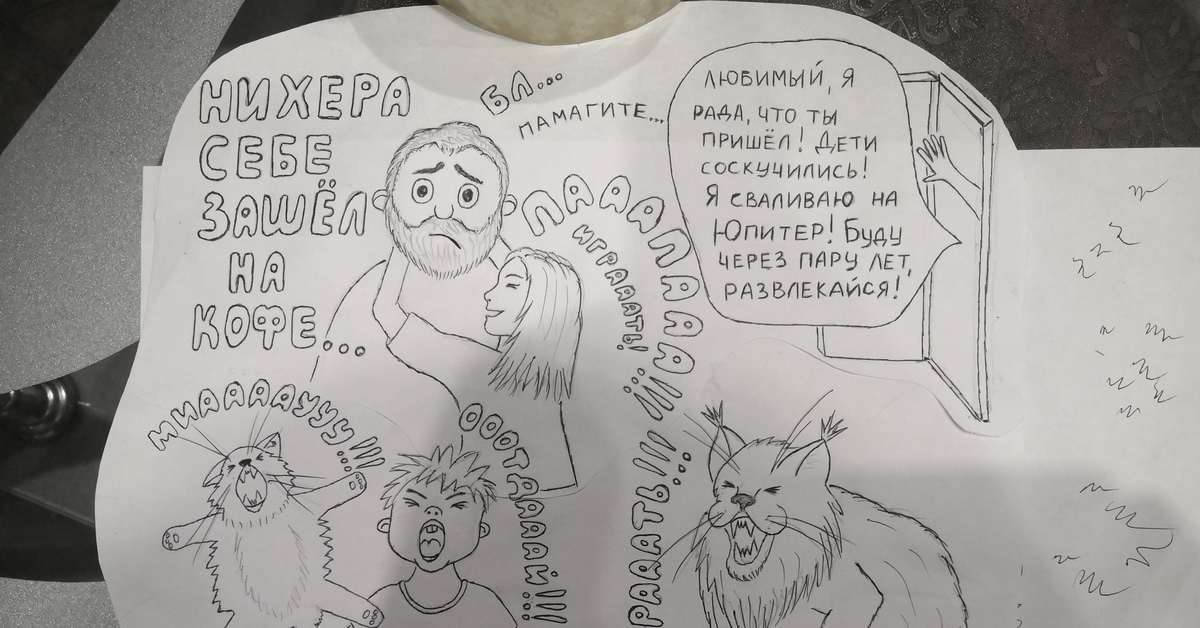 НИХЕРА
СЕБЕ
ЗАШЁЛ
НА
КОФЕ...
БЛ...
ПАМАГИТЕ...
ЛЮБИМЫЙ, Я
РАДА, ЧТО ТЫ
ПРИШЁЛ! ДЕТИ
СОСКУЧИЛИСЬ!
Я СВАЛИВАЮ НА
ЮПИТЕР! БУДУ
ЧЕРЕЗ ПАРУ ЛЕТ,
РАЗВЛЕКАЙСЯ!
ПАААПААА!!!
ИГРАААТЬ!...
МИАААААУУУ!!!...
ОООТДАААЙ!!!
РАААТЬ!!!...